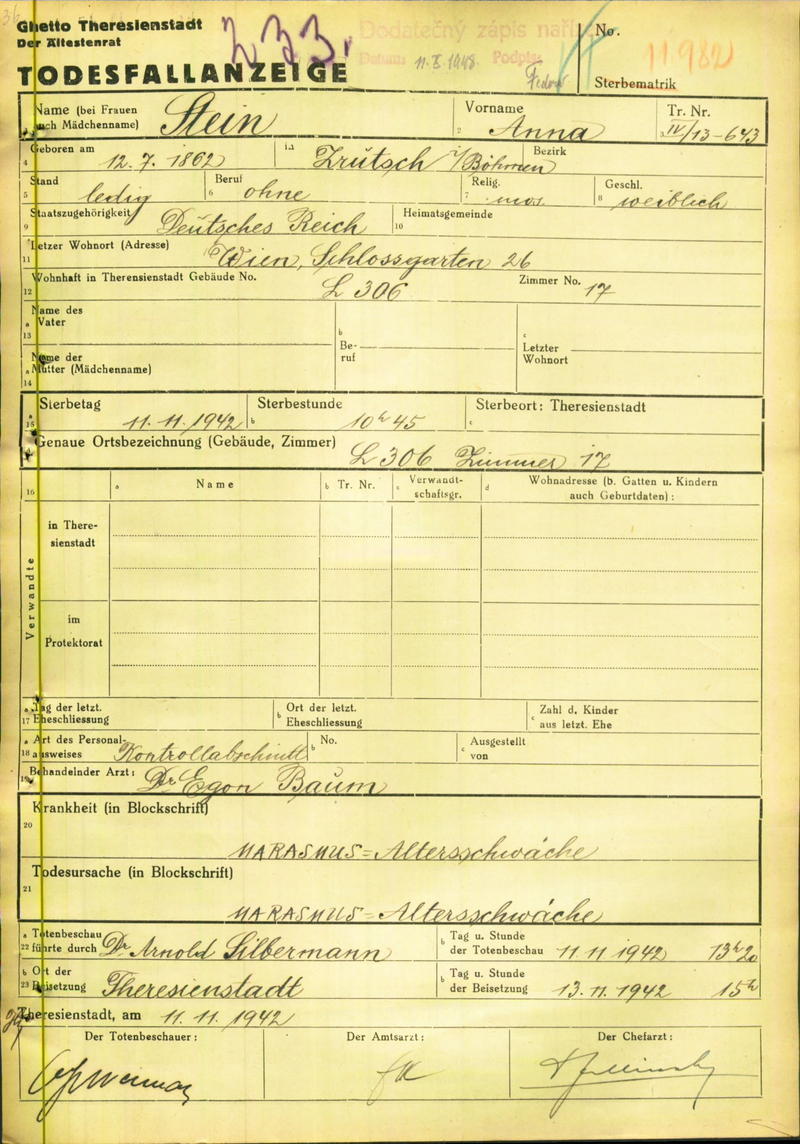 Ghetto Theresienstadt
Der Ältestenrat
TODESFALLANZEIGE
233.
Dodatečný zápis
Datum: 11. X. 1948 Podpis:
No. 11.982
Sterbematrik
Name (bei Frauen auch Mädchenname) Stein
2 Vorname Anna
3 Tr. Nr. IV/13-643
4 Geboren am 12.7.1862 in Zrutsch i/Böhmen Bezirk
5 Stand ledig 6 Beruf ohne 7 Relig. mos. 8 Geschl. weiblich
9 Staatszugehörigkeit Deutsches Reich 10 Heimatsgemeinde
11 Letzer Wohnort (Adresse) Wien, Schlossgarten 26
12 Wohnhaft in Theresienstadt Gebäude No. L 306 Zimmer No. 17
a 13 Name des Vater b Beruf c Letzter Wohnort
a 14 Name der Mutter (Mädchenname)
a 15 Sterbetag 11.11.1942 b Sterbestunde 10h 45 c Sterbeort: Theresienstadt
Genaue Ortsbezeichnung (Gebäude, Zimmer) L 306 Zimmer 17
16 a Name b Tr. Nr. c Verwandtschaftsgr. d Wohnadresse (b. Gatten u. Kindern auch Geburtdaten):
Verwandte
in Theresienstadt
im Protektorat
a 17 Tag der letzt. Eheschliessung b Ort der letzt. Eheschliessung c Zahl d. Kinder aus letzt. Ehe
a 18 Art des Personalausweises Kontrollabschnitt b No. c Ausgestellt von
19 Behandelnder Arzt: Dr Egon Baum
20 Krankheit (in Blockschrift)
MARASMUS = Altersschwäche
21 Todesursache (in Blockschrift)
MARASMUS = Altersschwäche
a 22 Totenbeschau führte durch Dr Arnold Silbermann b Tag u. Stunde der Totenbeschau 11.11.1942 13h20
b 23 Ort der Beisetzung Theresienstadt b Tag u. Stunde der Beisetzung 13.11.1942 15h
Theresienstadt, am 11.11.1942
Der Totenbeschauer: Der Amtsarzt: Der Chefarzt: